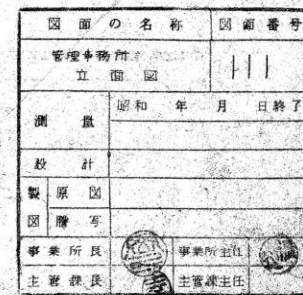 図面の名称 図面番号
管理事務所
立面図
111
測量 昭和 年 月 日終了
設計
製図 原図
謄写
事業所長 事業所主任
主管課長 主管課主任